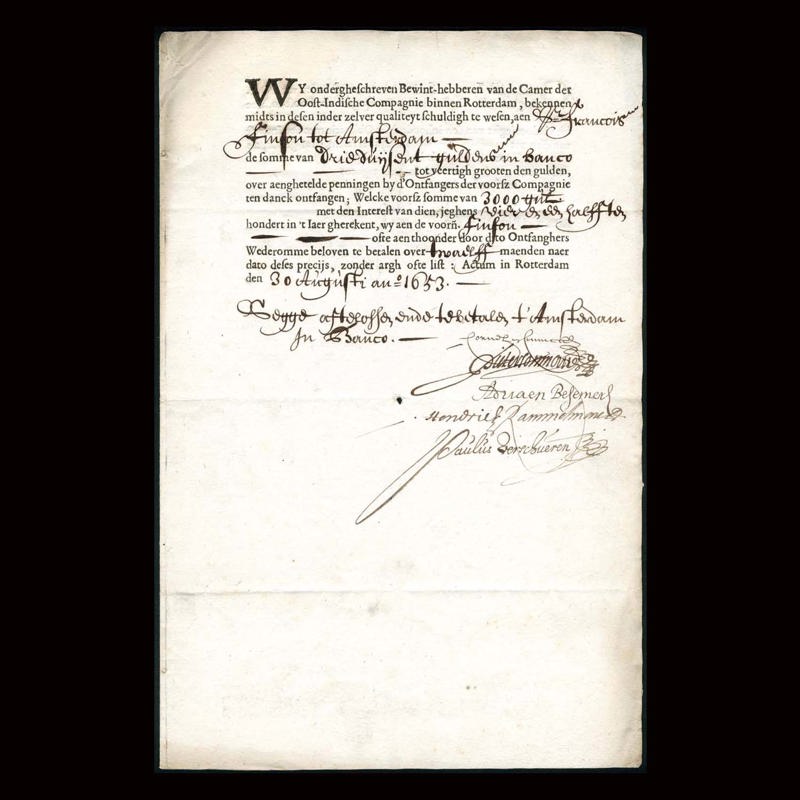 WY ondergheschreven Bewint-hebberen van de Camer der
Oost-Indische Compagnie binnen Rotterdam, bekennen
midts in desen inder zelver qualiteyt schuldigh te wesen, aen Sr. Francois
Finson tot Amsterdam —
de somme van drie duijsent guldens in banco
tot veertigh grooten den gulden,
over aenghetelde penningen by d'Ontfangers der voorsz Compagnie
ten danck ontfangen; Welcke voorsz somme van 3000 gul.
met den Interest van dien, jeghens vier en een halff ten
hondert in 't Iaer gherekent, wy aen de voorñ. Finson —
ofte aen thoonder door dito Ontfanghers
Wederomme beloven te betalen over twaelff maenden naer
dato deses precijs, zonder argh ofte list : Actum in Rotterdam
den 30 Augusti an.º 1653. —
Segge afte lossen ende te betalen t'Amsterdam
In Banco. —
Adriaen Besemer
Hendrick
Paulus Verschueren